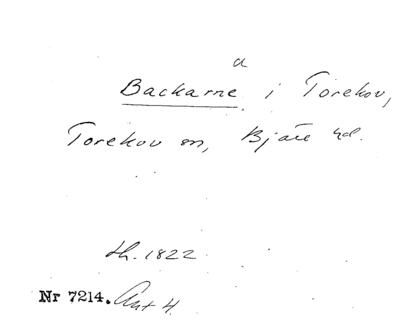 a
Backarne i Torekov,
Torekov sn, Bjäre hd.
lh. 1822
Nr 7214. Akt 4.